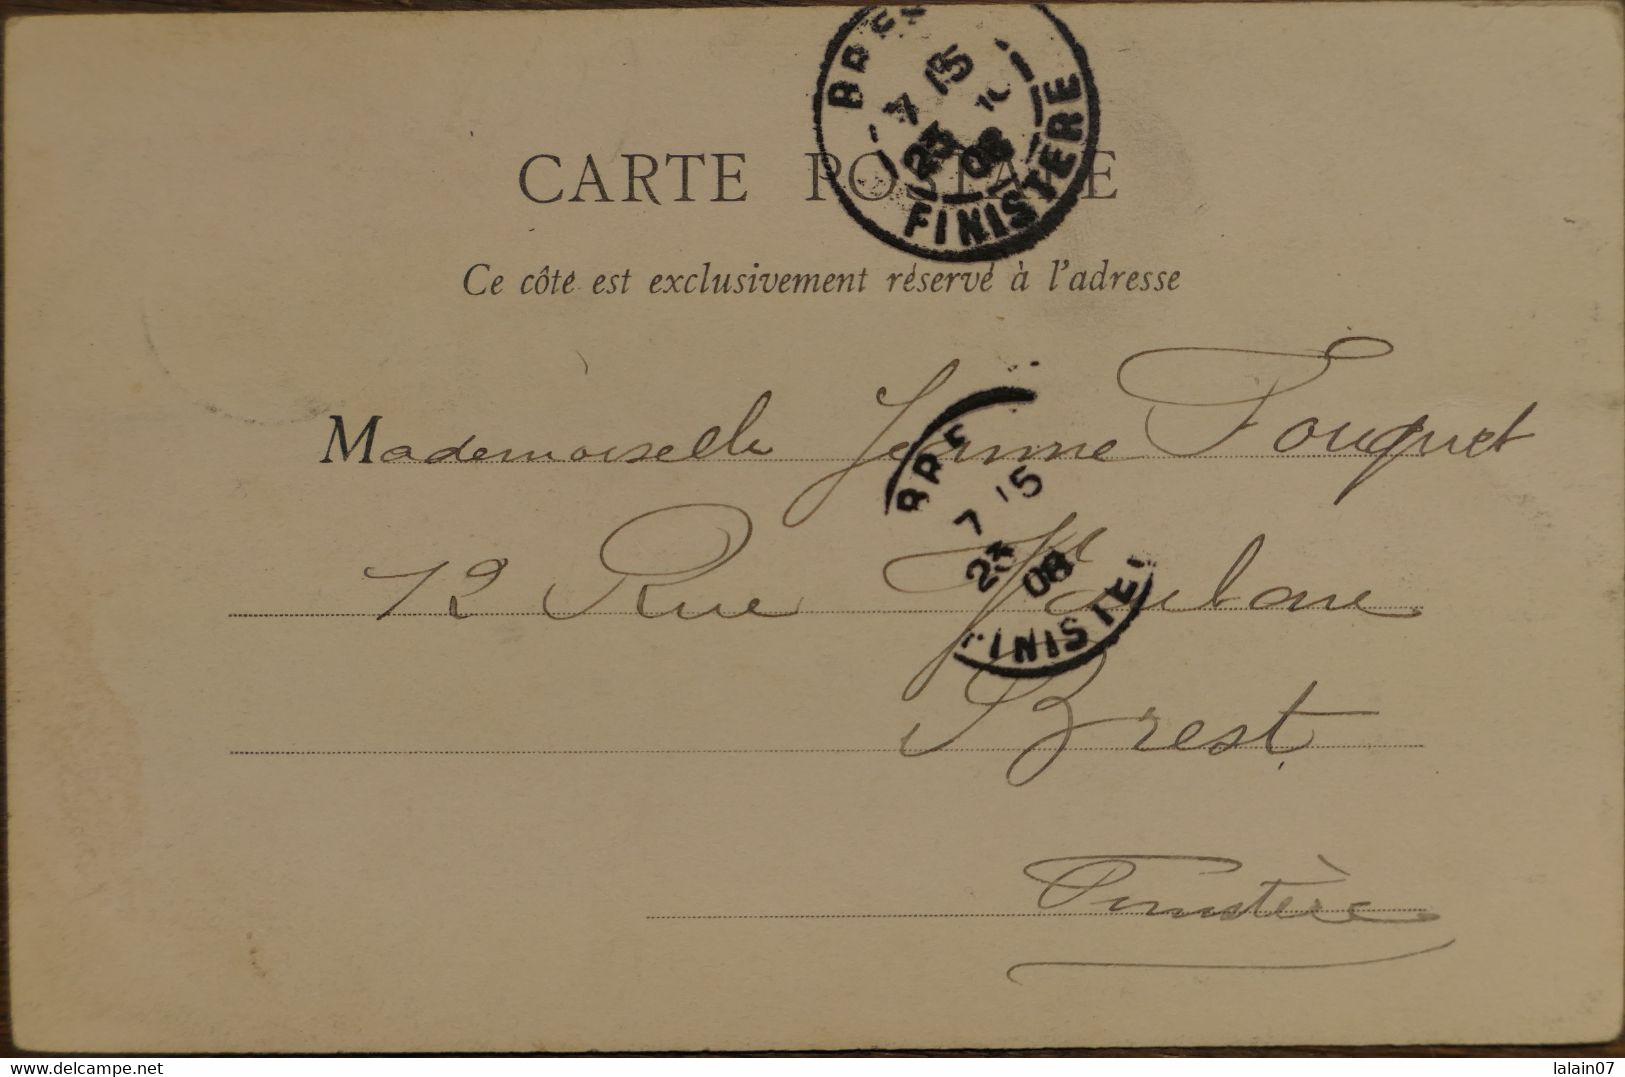 BRE
7 15
23 10
08
FINISTERE
CARTE POSTALE
Ce côté est exclusivement réservé à l'adresse
Mademoiselle Jeanne Fouquet
BRE
7 15
23
08
INISTE
12 Rue
Brest.
Finistère
www.delcampe.net
lalain07